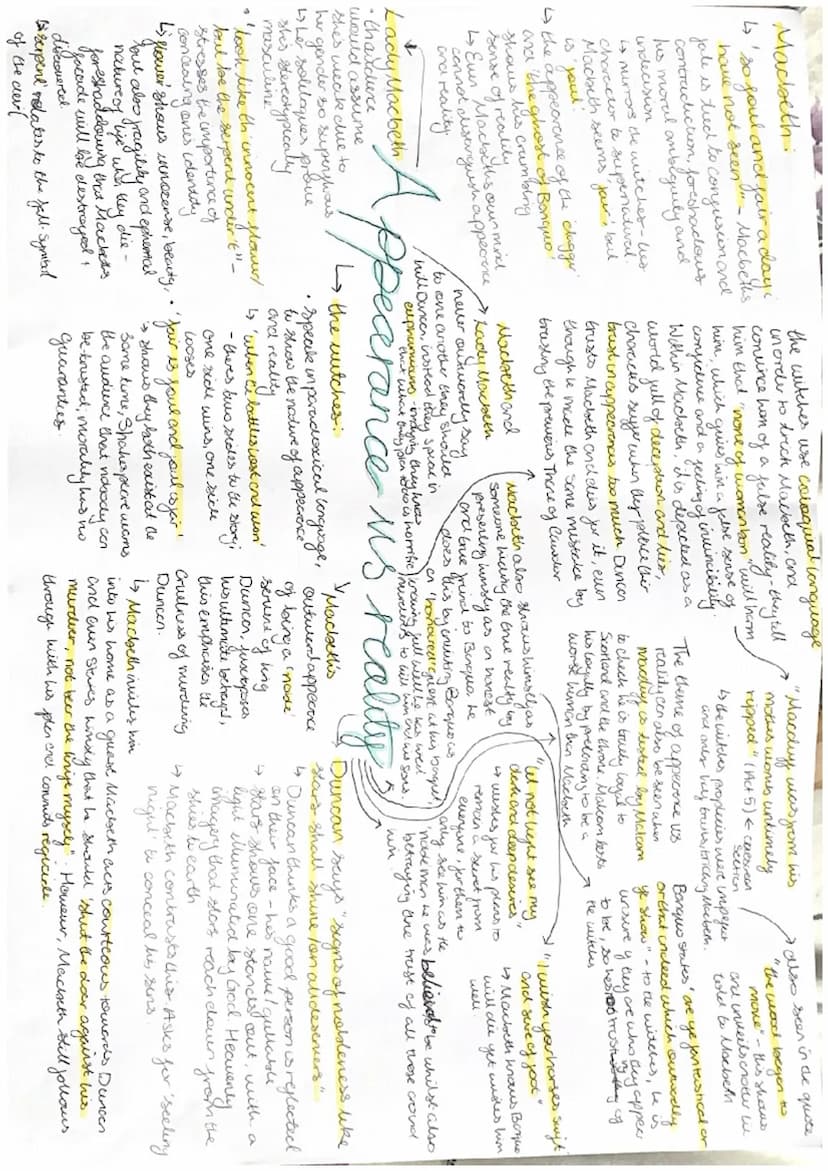 Macbeth:
↳ 'so foul and fair a day i
have not seen' - Macbeths
fate is tied to confusion and
contradiction, foreshadows
his moral ambiguity and
indecision
↳ mirrors the witches - links
character to supernatural
Macbeth seems 'fair', but
is 'foul'
↳ the appearance of the dagger
and 'the ghost of Banquo'
shows his crumbling
sense of reality
↳ Even Macbeths own mind
cannot distinguish appearance
and reality
the witches use equivocal language
in order to trick Macbeth, and
convince him of a false reality - they tell
him that 'none of woman born' will harm
him, which gives him a false sense of
confidence and a feeling of invincibility.
Within Macbeth, it is depicted as a
world full of deception and lies,
characters suffer when they put their
trust in appearances too much. Duncan
trusts Macbeth and dies for it, even
though he made the same mistake by
trusting the previous Thane of Cawdor
"Macduff was from his
mothers womb untimely
ripped" (Act 5) ← caesarean
section
↳ the witches prophecies were in part
and only half truths, tricking Macbeth.
The theme of appearance vs
reality can also be seen when
Macduff is tested by Malcom
to check he is truly loyal to
Scotland and the throne. Malcom tests
his loyalty by pretending to be a
worse human than Macbeth
also seen in the quote
"the wood began to
move" - this shows
and unveils another lie
told to Macbeth
Banquo states 'are ye fantastical or
or that indeed which outwardly
ye show" - to the witches, he is
unsure if they are who they appear
to be, so he is not trusting of
the witches
Appearance vs reality
Lady Macbeth
• Audience
would assume
shes weak due to
her gender so superfluous
↳ her soliloquies prove
shes stereotypically
masculine
• 'look like th' innocent flower/
but be the serpent under't" -
stresses the importance of
concealing ones identity
↳ 'flower' shows innocence, beauty,
but also fragility and ephemeral
nature of life when they die -
foreshadowing that Macbeths
facade will be destroyed +
discovered
↳ 'serpent' relates to the fall - symbol
of the devil
Macbeth and
Lady Macbeth
never outwardly say
to one another they should
kill Duncan, instead they speak in
euphemisms - implying they know
that what they plan is so horrific
↳ the witches:
• speak in paradoxical language,
to show the nature of appearance
and reality
↳ 'when the battles lost and won'
- theres two sides to the story;
one side wins, one side
looses
• 'fair is foul and foul is fair'
↳ shows they both exist at the
same time, Shakespeare warns
the audience that nobody can
be trusted, morality has no
guarantees.
Macbeth also shows himself as
someone hiding the true reality by
presenting himself as an honest
and true friend to Banquo, he
does this by inviting Banquo as
an 'honoured' guest at his banquet,
knowing full well he has hired
murderers to kill him and his sons
"let not light see my
dark and deep desires"
↳ wishes for his plans to
remain a secret from
everyone, for them to
only see him as the
noble man he was believed to be whilst also
betraying the trust of all those around
him.
"I wish your horses swift
and sure of foot"
↳ Macbeth knows Banquo
will die yet wishes him
well.
↳ Macbeth's
outward appearance
of being a 'noble'
servant of King
Duncan, juxtaposes
his ultimate betrayal,
this emphasises the
cruelness of murdering
Duncan.
↳ Macbeth invites him
into his home as a guest. Macbeth acts courteous towards Duncan
and even states himself that he should 'shut the door against his
murderer, not bear the knife myself'. However, Macbeth still follows
through with his plan and commits regicide.
Duncan says "signs of nobleness like
stars shall shine / on all deservers"
↳ Duncan thinks a good person is reflected
on their face - his naive / gullible
↳ 'stars' shows one stands out, with a
light illuminated by God. Heavenly
imagery that stars reach down from the
skies to earth
↳ Macbeth contrasts this. Asks for 'seeling
night' to conceal his sins.